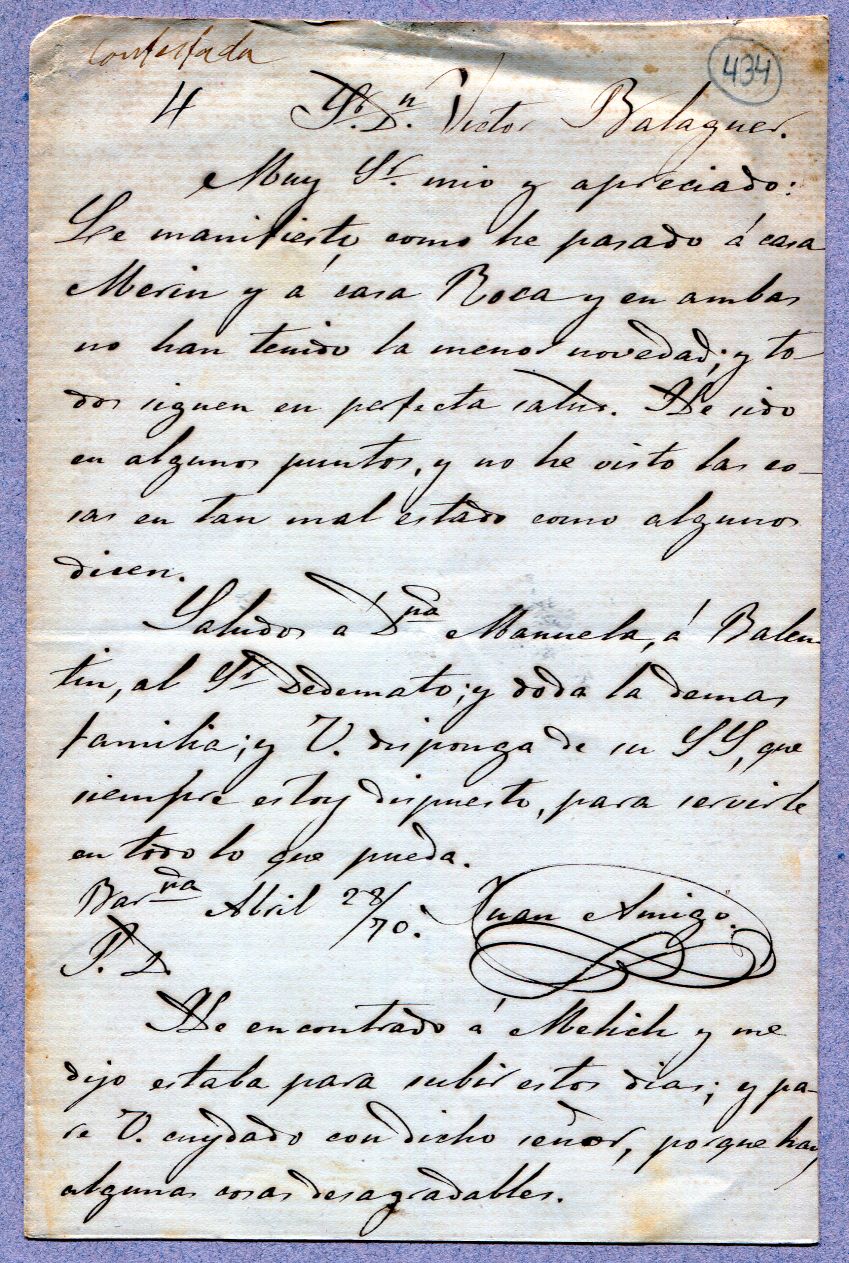 contestada
434
4 Sr. Dn. Victor Balaguer.
Muy Sr. mio y apreciado:
Le manifiesto, como he pasado á casa
Merin y á casa Roca y en ambas
no han tenido la menor novedad; y to-
dos siguen en perfecta salud. He sido
en algunos puntos, y no he visto las co-
sas en tan mal estado como algunos
dicen.
Saludos a Dña Manuela, á Balen-
tin, al Sr. y doda la demas
familia; y V. disponga de su SS, que
siempre estoy dispuesto, para servirle
en todo lo que pueda.
Barna Abril 28/70. Juan Amigo.
P. D.
He encontrado á Melich y me
dijo estaba para subir estos dias; y pa-
re V. cuydado con dicho señor, porque hay
algunas cosas desagradables.